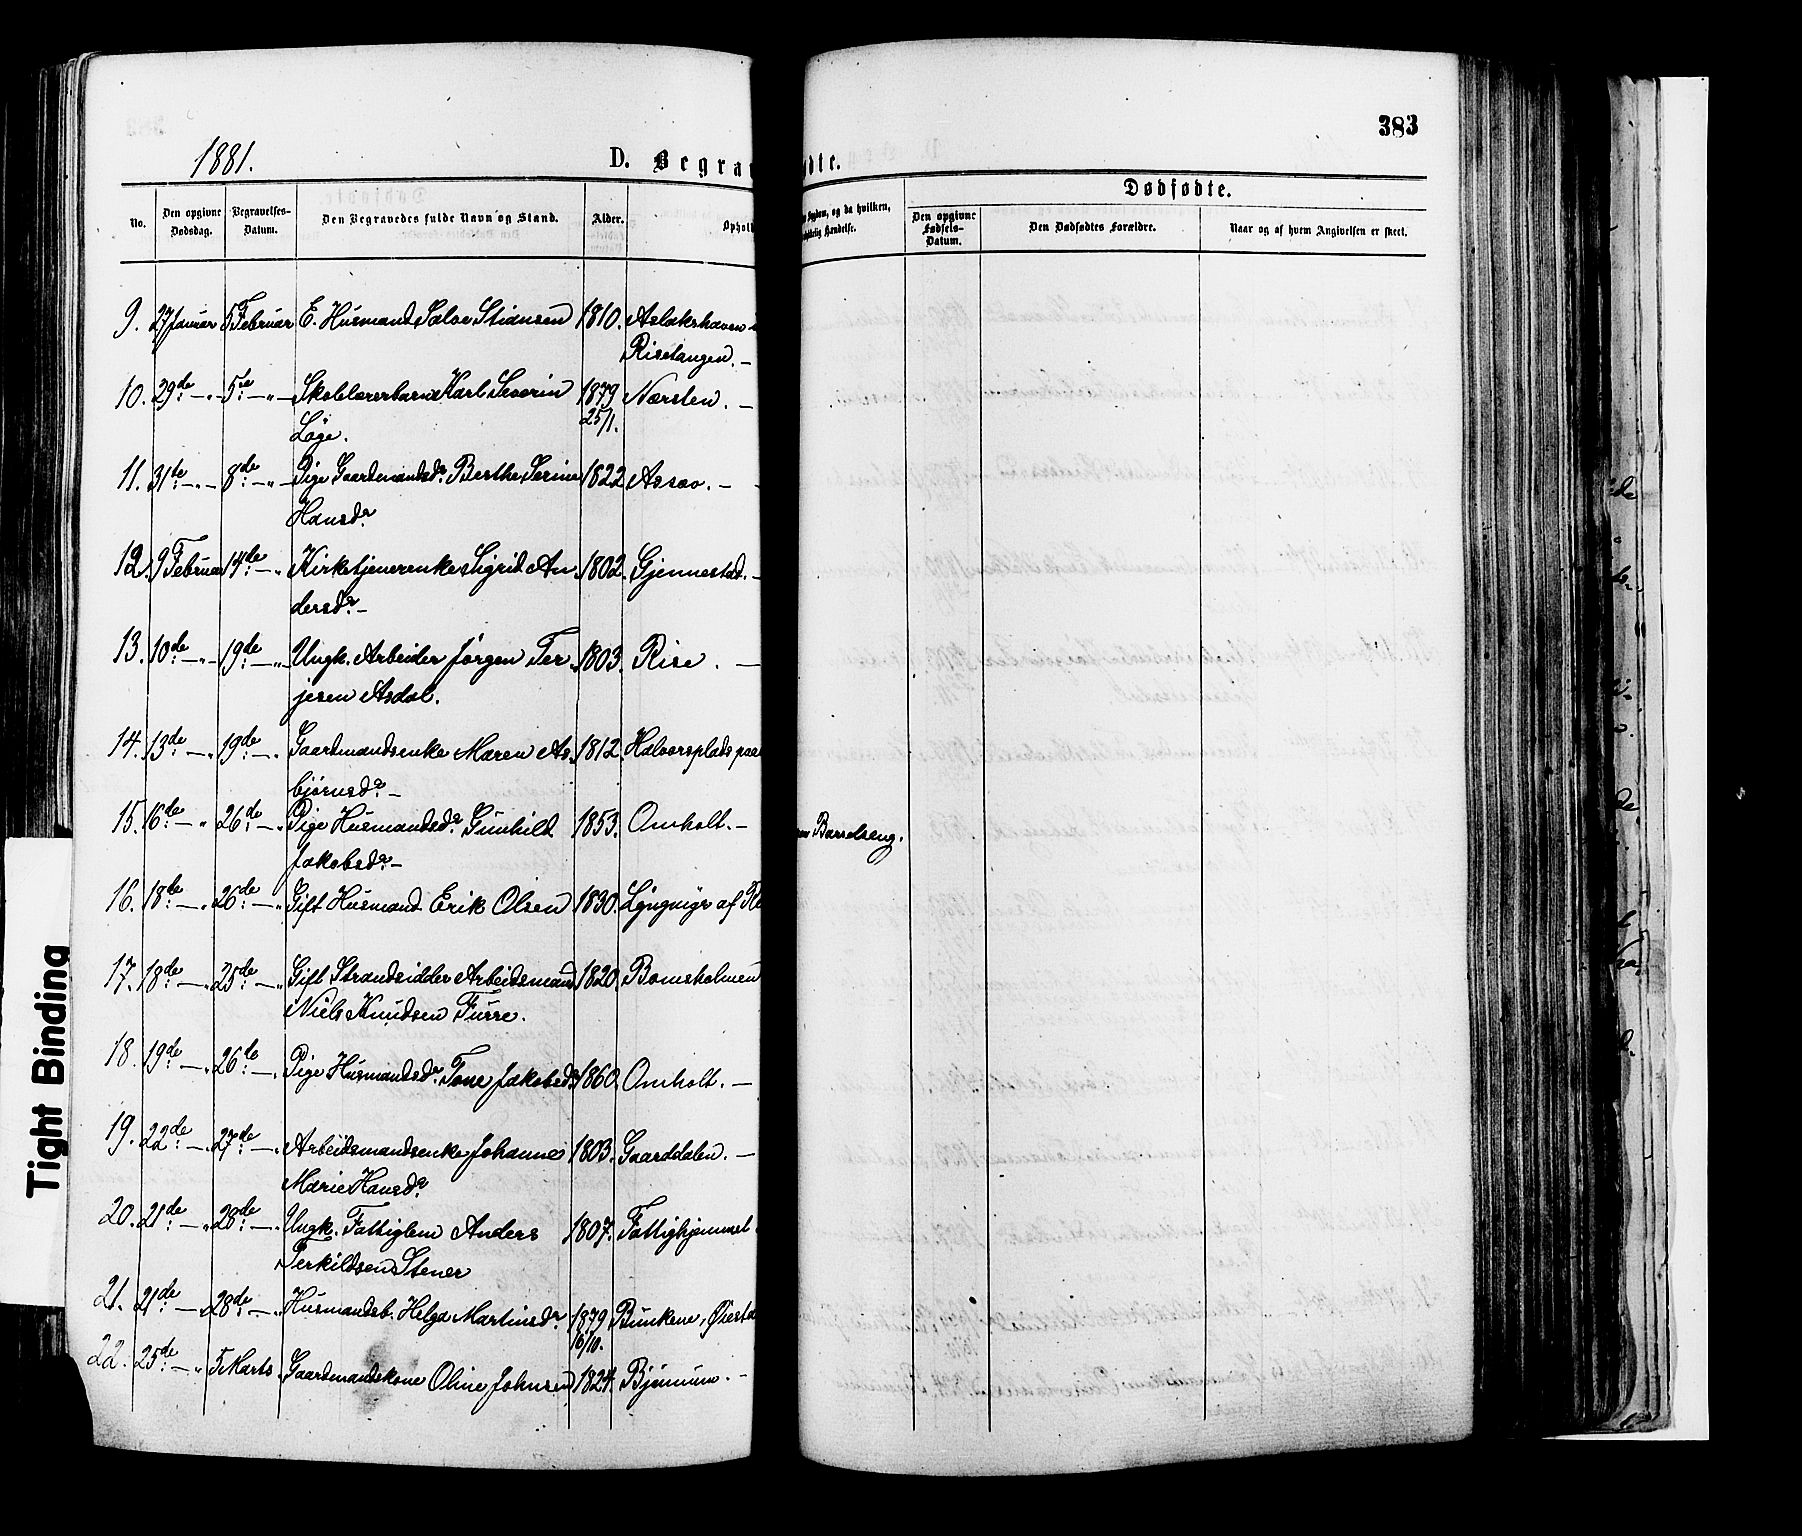 383
1881.
D. Begra
ødte.
Dødfødte.
No.
Den opgivne Dødsdag.
Begravelses-Datum.
Den Begravedes fulde Navn og Stand.
Alder.
Ophold
Sygdom, og da hvilken,
Hændelse.
Den opgivne Fødsels-Datum.
Den Dødfødtes Forældre.
Naar og af hvem Angivelsen er skeet.
9. 27 Januar 5 Februar E. Husmand Salve Stiansen 1810. Aslakshaven
Risetangen. —
10. 29de — " — 5te — " — Skolelærerbarn Karl Severin 1879 Nærsten. —
Løge. 25/1.
11. 31te — " — 8de — " — Pige Gaardmandsdr. Berthe Serine 1822 Assæv. —
Hansdr.
12. 9 Februar 14de — " Kirketjenerenke Sigrid An 1802. Gjennestad. —
dersdr. —
13. 10de — " — 19de — " — Ungk. Arbeider Jørgen Ter 1803. Rise. —
jesen Asdal.
14. 13de — " 19de — " Gaardmandsenke Maren As 1812. Halvorsplads paa
bjørnsdr. —
15. 16de — " 26de — " Pige Husmandsdr. Gunhild 1853. Omholt. —
Jakobsdr. —
Barselseng.
16. 18de — " 26de — " Gift Husmand Erik Olsen 1830. Lyngmyr af
17. 18de — " 25de — " Gift Strandsidder Arbeidsmand 1820. Bomsholmen
Niels Knudsen Furre.
18. 19de — " 26de — " Pige Husmandsdr. Tone Jakobsdr. 1860. Omholt. —
19. 22de — " 27de — " Arbeidsmandsenke Johanne 1803. Gaarddalen. —
Marie Hansdr.
20. 21de — " 28de — " Ungk. Fattiglem Anders 1807. Fattighjemmet
Terkildsen Stener
21. 21de — " 28de — " Husmandsb. Helga Martinsdr. 1879 Bunkene, Øiesta
16/10.
22. 25de — " 5 Marts. Gaardmandskone Oline Johnsen 1824. Bjønnum. —
Tight Binding